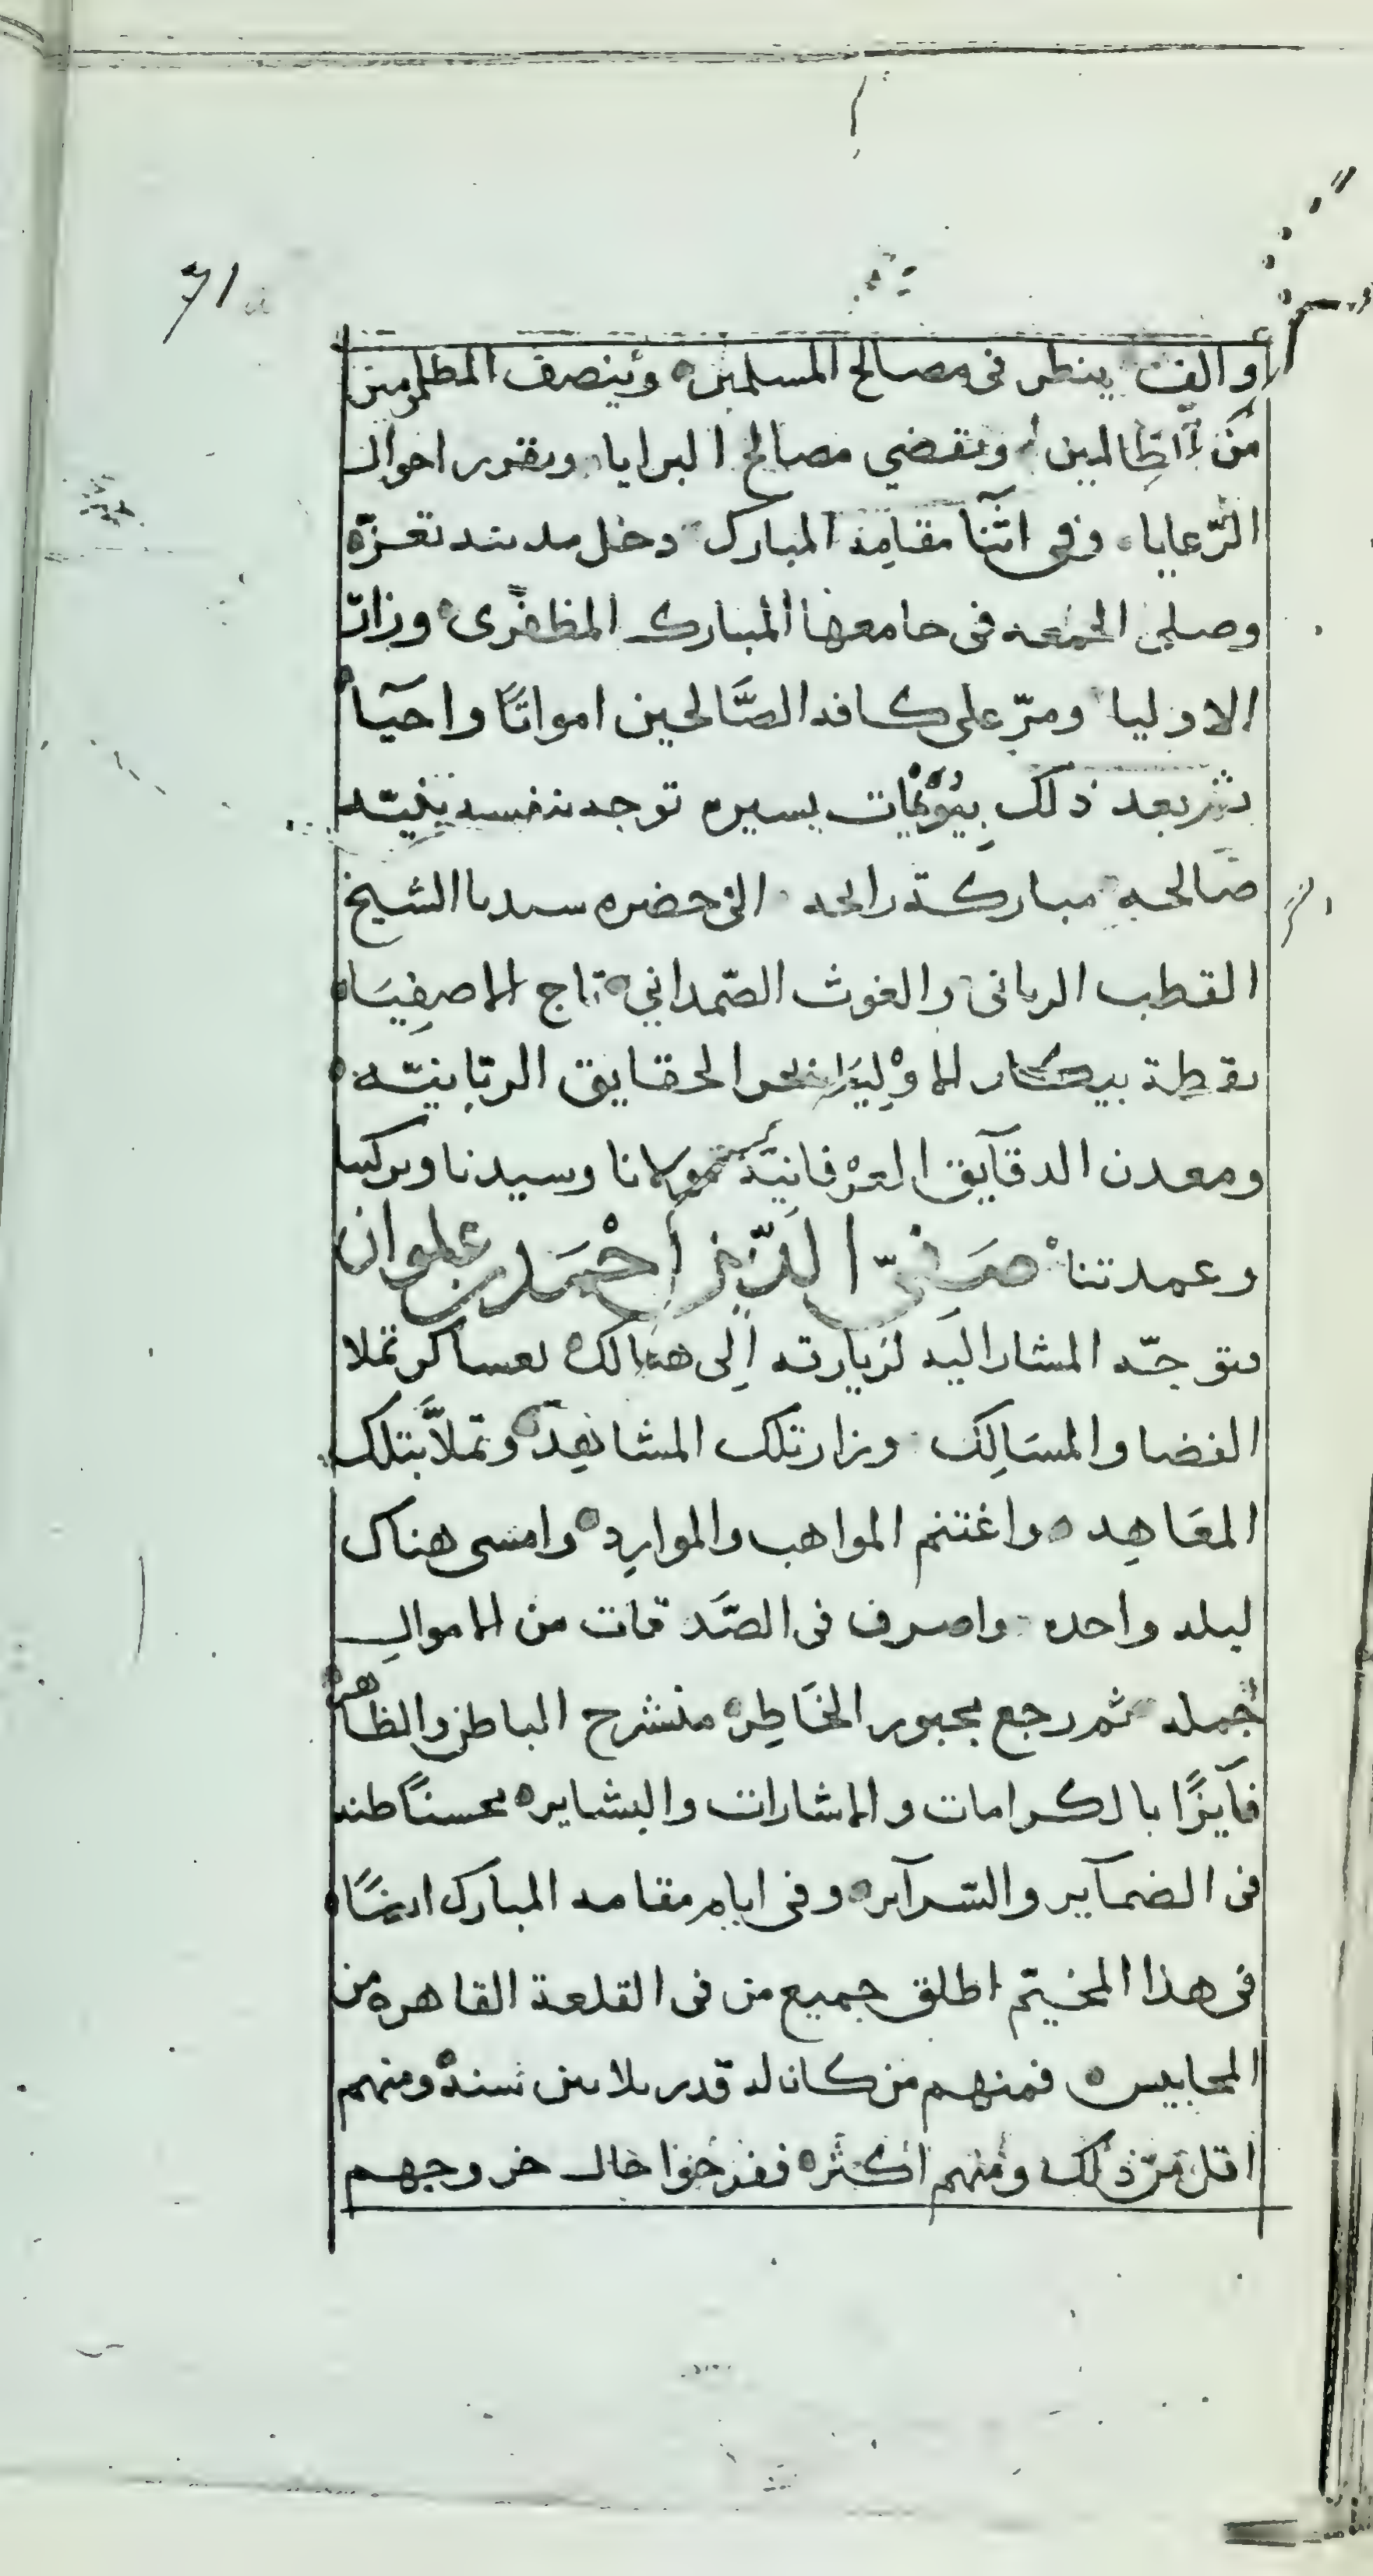 71
وألف ينظر في مصالح المسلمين وينصف المظلومين
من الظالمين ويقضي مصالح البرايا ويقرر احوال
الرّعايا وفي اثنا مقامه المبارك دخل مدينه تعز
وصلى الجمعه في جامعها المبارك المظفّرى وزار
الاوليا ومرّ على كافه الصَّالحين امواتًا واحيآ
ثم بعد ذلك بيُوَيْمات يسيره توجه بنفسه بنيّه
صالحه مباركة رابحه الى حضره سيدنا الشيخ
القطب الربانى والغوث الصّمداني تاج الاصفِيَا
نقطة بيكار الاوْلِيَا بحر الحقايق الربّانيّه
ومعدن الدقآيق العرْفانيَّة مولانا وسيدنا وبركتنا
وعمدتنا صَفيّ الدّين احْمَد بن علوان
فتوجّه المشار اليه لزيارته اِلى هنالك بعساكر تملا
الفضا والمسَالِك وزار تلك المشاهِد وتملَّا بتلك
المعَاهِد واغتنم المواهب والموارِد وامسى هناك
ليله واحده واصرف فى الصَّدقات من الاموال
جُمله ثم رجع مجبور الخَاطِر منشرح الباطن والظاهر
فآيزًا بالكرامات والاشارات والبشاير محسنًا ظنه
فى الضمآير والسّرآير وفى ايام مقامه المبارك ايضًا
فى هذا المخيّم اطلق جميع من فى القلعة القاهره من
المحابيس فمنهم من كان له قدر ثلاثين سنة ومنهم
اقل من ذلك ومنهم اكثر ففرحوا حال خروجهم